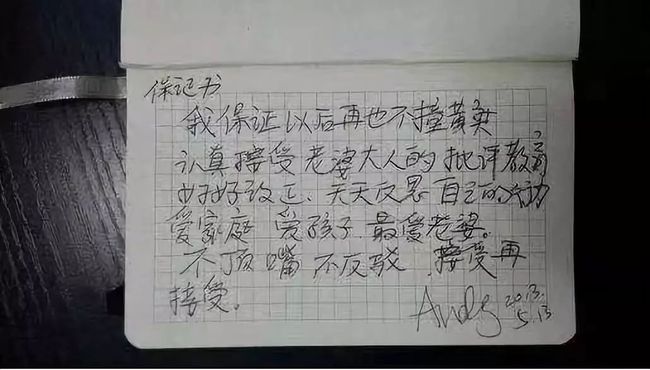 保证书
我保证以后再也不撞黄奕
认真接受老婆大人的批评教育，
好好改正、天天反思自己的行动
爱家庭 爱孩子 最爱老婆。
不顶嘴 不反驳 接受再
接受。
Andy 2013.
5.13